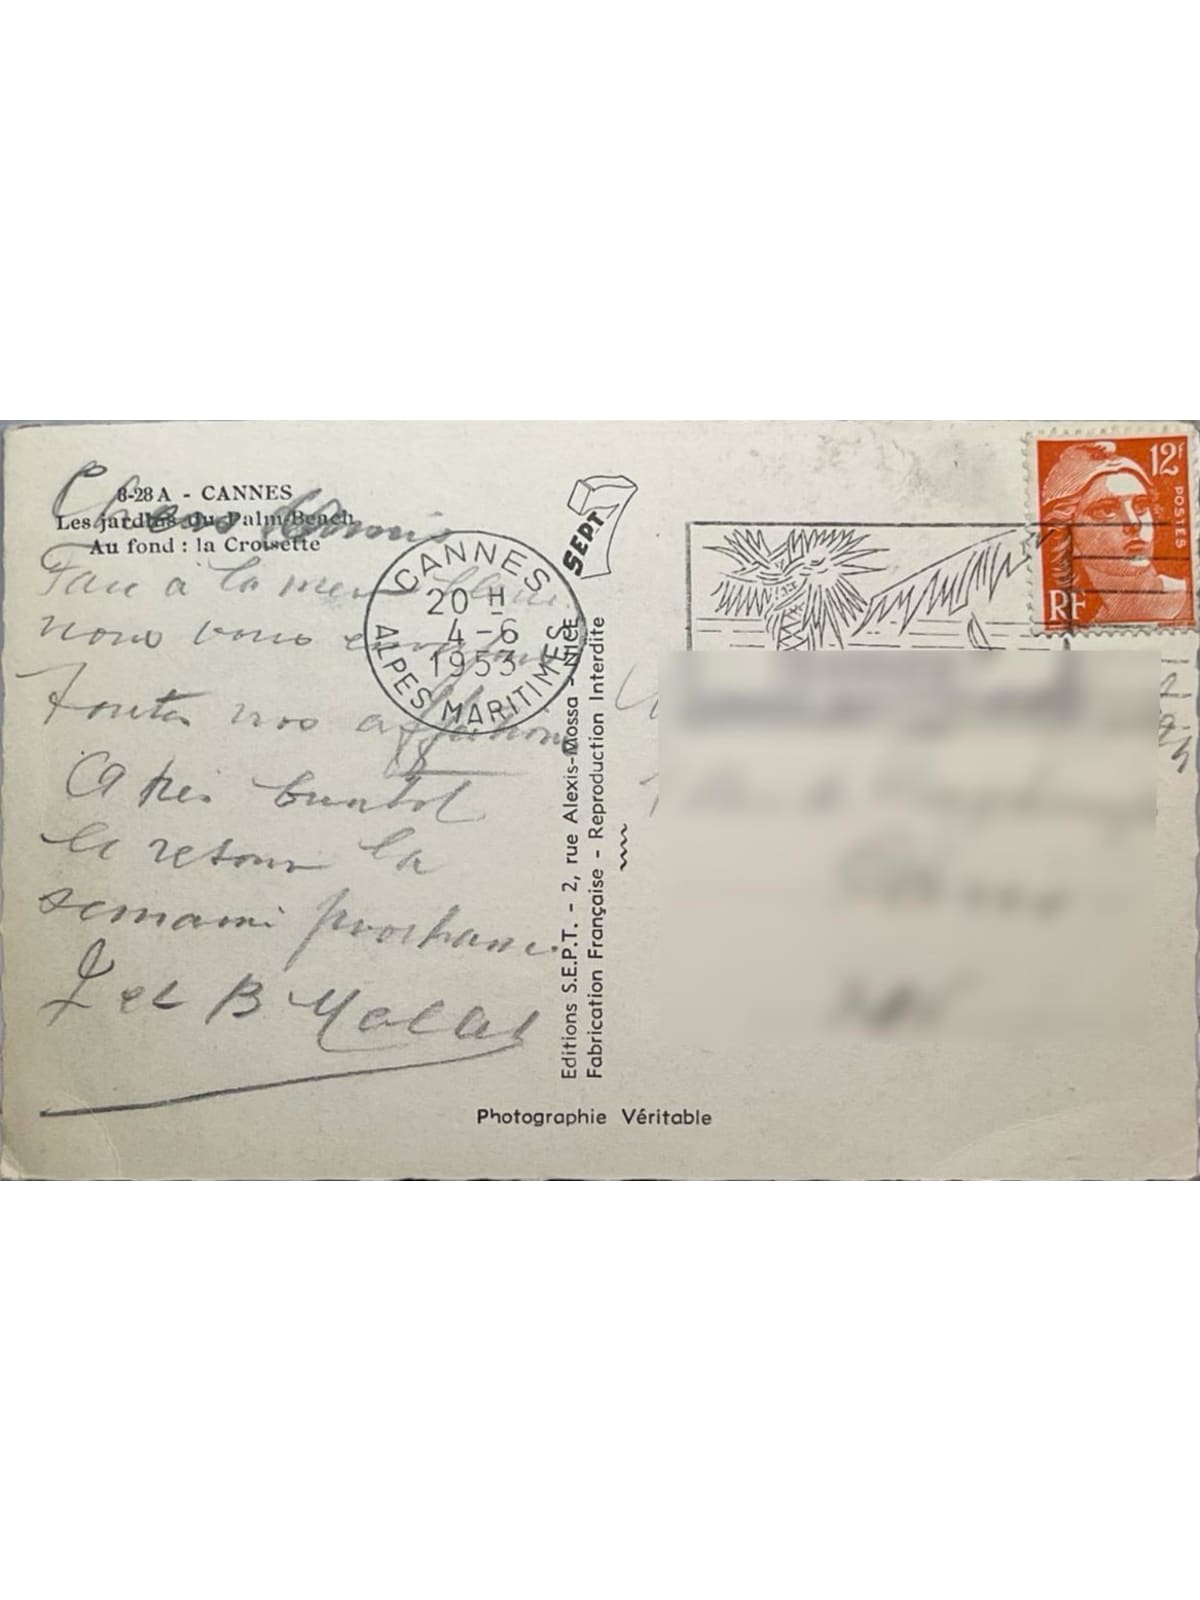 8-28 A - CANNES
Les jardins du Palm Beach
Au fond : la Croisette
Chers Amis
Face à la mer bleue
nous vous
Toutes nos affections
A très bientôt
le retour la
semaine prochaine.
Les B
CANNES
20 H
4 - 6
1953
ALPES MARITIMES
SEPT
Editions S.E.P.T. - 2, rue Alexis-Mossa - NICE
Fabrication Française - Reproduction Interdite
Photographie Véritable
12F
POSTES
RF